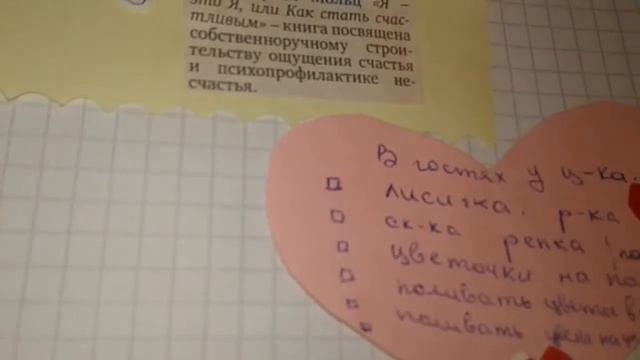 Мольц «Я –
это Я, или Как стать счас-
тливым» – книга посвящена
собственноручному строи-
тельству ощущения счастья
и психопрофилактике не-
счастья.
В гостях у ц-ка.
лисичка. р-ка
ск-ка репка
цветочки на
поливать цветы
поливать